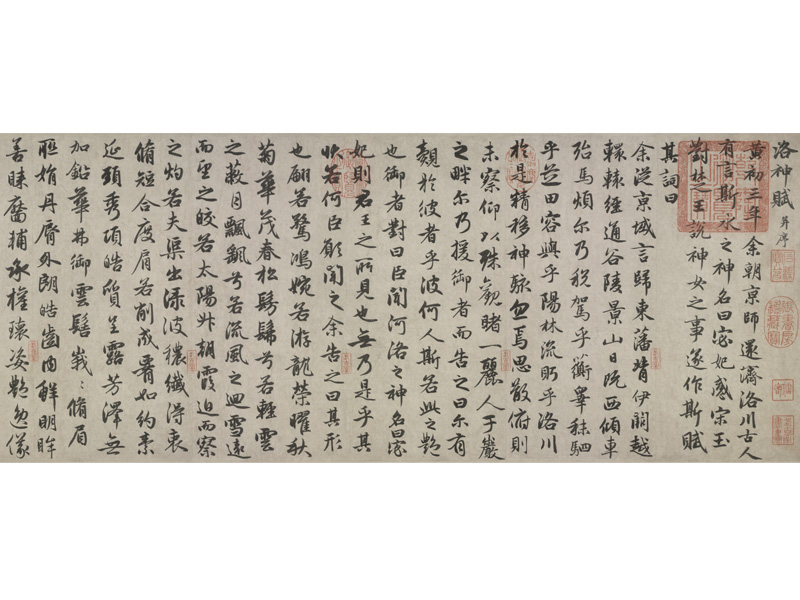 洛神賦 并序
黃初三年余朝京師還濟洛川古人
有言斯水之神名曰宓妃感宋玉
對楚之王說神女之事遂作斯賦
其詞曰
余從京域言歸東藩背伊闕越
轘轅經通谷陵景山日既西傾車
殆馬煩尔乃稅駕乎蘅睾秣駟
乎芝田容與乎陽林流眄乎洛川
於是精移神駭忽焉思散俯則
未察仰以殊觀睹一麗人于巖
之畔尔乃援御者而告之曰尔有
覿於彼者乎彼何人斯若此之艷
也御者對曰臣聞河洛之神名曰宓
妃則君王之所見也無乃是乎其
狀若何臣願聞之余告之曰其形
也翩若驚鴻婉若游龍榮曜秋
菊華茂春松髣髴兮若輕雲
之蔽月飄飖兮若流風之迴雪遠
而望之皎若太陽升朝霞迫而察
之灼若夫渠出淥波穠纖得衷
脩短合度肩若削成署如約素
延頸秀項皓質呈露芳澤無
加鉛華弗御雲髻峩〻脩眉
聯娟丹脣外朗皓齒內鮮明眸
善睞靨輔承權瓌姿艷逸儀